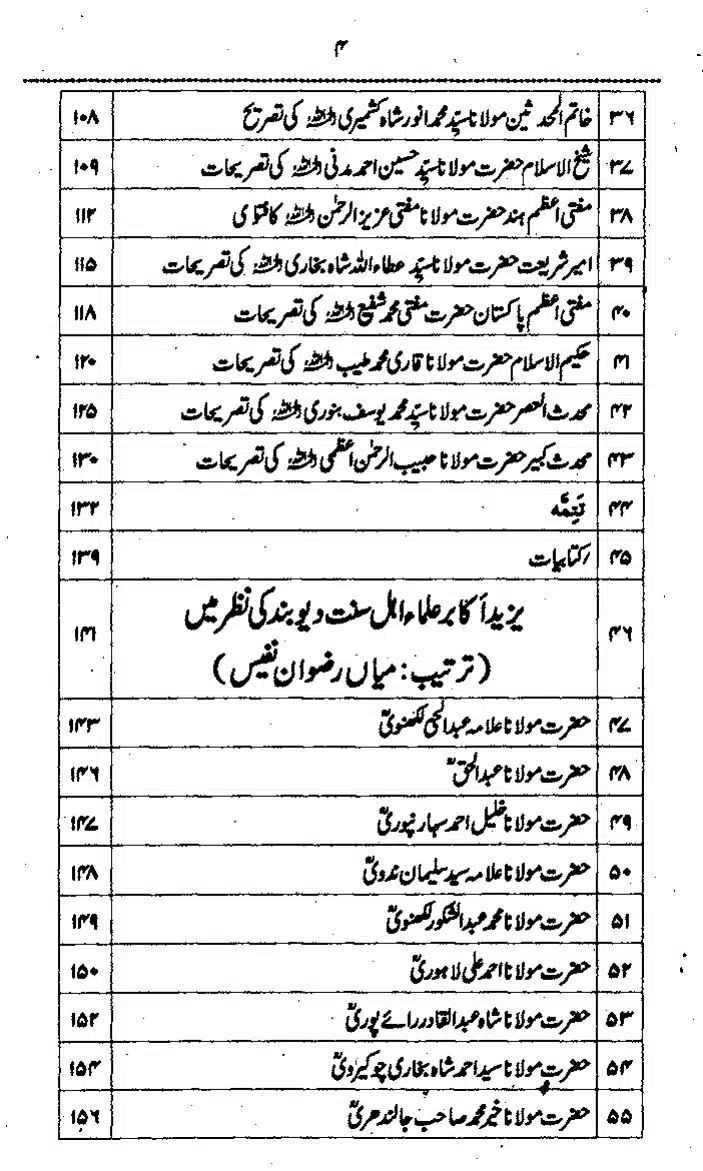 ۴
۳۶ خاتم المحدثین مولانا سیّد محمد انور شاہ کشمیری رحمہ اللہ کی تصریح ۱۰۸
۳۷ شیخ الاسلام حضرت مولانا سیّد حسین احمد مدنی رحمہ اللہ کی تصریحات ۱۰۹
۳۸ مفتی اعظم ہند حضرت مولانا مفتی عزیز الرحمٰن رحمہ اللہ کا فتاوی ۱۱۲
۳۹ امیر شریعت حضرت مولانا سیّد عطاء اللہ شاہ بخاری رحمہ اللہ کی تصریحات ۱۱۵
۴۰ مفتی اعظم پاکستان حضرت مفتی محمد شفیع رحمہ اللہ کی تصریحات ۱۱۸
۴۱ حکیم الاسلام حضرت مولانا قاری محمد طیب رحمہ اللہ کی تصریحات ۱۲۰
۴۲ محدث العصر حضرت مولانا سیّد محمد یوسف بنوری رحمہ اللہ کی تصریحات ۱۲۵
۴۳ محدث کبیر حضرت مولانا حبیب الرحمٰن اعظمی رحمہ اللہ کی تصریحات ۱۳۰
۴۴ تَتِمَّہ ۱۳۲
۴۵ کتابیات ۱۳۹
۴۶ یزید اَکابر علماء اہل سنت دیوبند کی نظر میں ۱۴۱
(ترتیب: میاں رضوان نفیس)
۴۷ حضرت مولانا علامہ عبدالحیی لکھنویؒ ۱۴۳
۴۸ حضرت مولانا عبدالحقؒ ۱۴۶
۴۹ حضرت مولانا خلیل احمد سہارنپوریؒ ۱۴۷
۵۰ حضرت مولانا علامہ سید سلیمان ندویؒ ۱۴۸
۵۱ حضرت مولانا محمد عبدالشکور لکھنویؒ ۱۴۹
۵۲ حضرت مولانا احمد علی لاہوریؒ ۱۵۰
۵۳ حضرت مولانا شاہ عبدالقادر رائے پوریؒ ۱۵۲
۵۴ حضرت مولانا سید احمد شاہ بخاری چوکیرویؒ ۱۵۴
۵۵ حضرت مولانا خیر محمد صاحب جالندھریؒ ۱۵۶